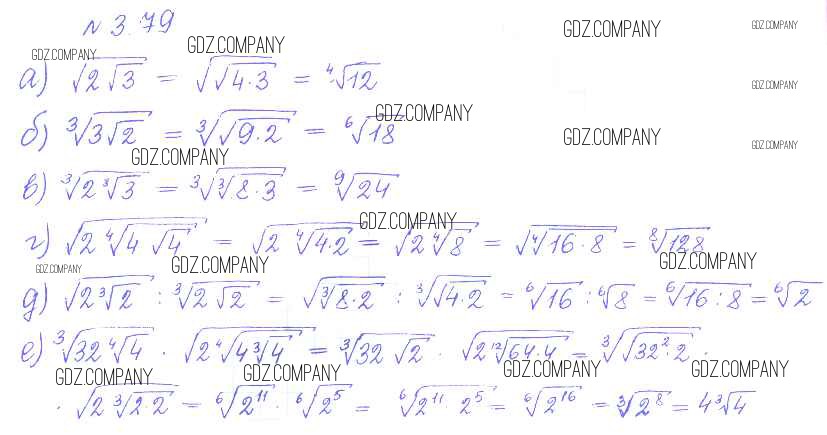 № 3.79
GDZ.COMPANY GDZ.COMPANY GDZ.COMPANY GDZ.COMPANY
а) √(2√3) = √(√(4·3)) = ⁴√12
GDZ.COMPANY
GDZ.COMPANY
б) ³√(3√2) = ³√(√(9·2)) = ⁶√18
GDZ.COMPANY GDZ.COMPANY GDZ.COMPANY
в) ³√(2 ³√3) = ³√(³√(8·3)) = ⁹√24
GDZ.COMPANY
г) √(2 ⁴√(4 √4)) = √(2 ⁴√(4·2)) = √(2 ⁴√8) = √(⁴√(16·8)) = ⁸√128
GDZ.COMPANY GDZ.COMPANY GDZ.COMPANY
д) √(2 ³√2) : ³√(2 √2) = √(³√(8·2)) : ³√(√(4·2)) = ⁶√16 : ⁶√8 = ⁶√(16:8) = ⁶√2
е) ³√(32 ⁴√4) · √(2 ⁴√(4 ³√4)) = ³√(32 √2) · √(2 ¹²√(64·4)) = ³√(√(32²·2)) ·
GDZ.COMPANY GDZ.COMPANY GDZ.COMPANY GDZ.COMPANY
· √(2 ³√(2·2)) = ⁶√(2¹¹) · ⁶√(2⁵) = ⁶√(2¹¹ 2⁵) = ⁶√(2¹⁶) = ³√(2⁸) = 4 ³√4